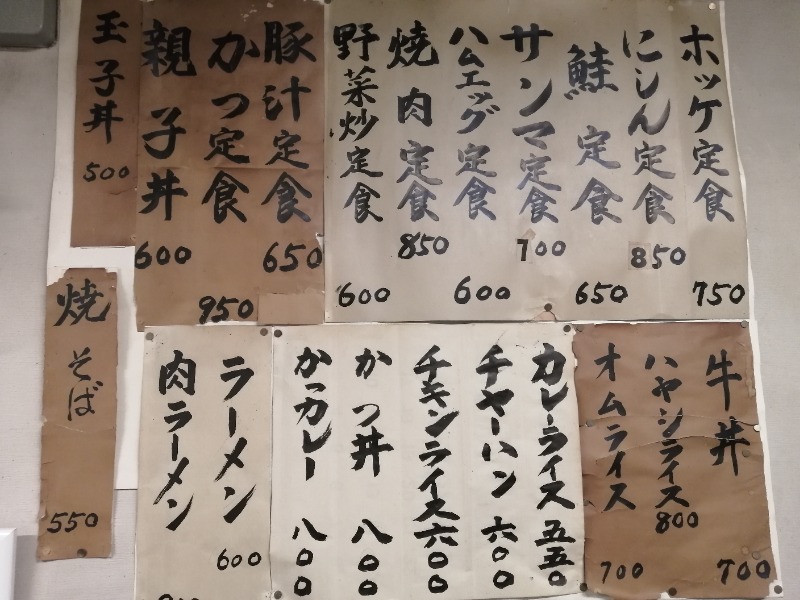 ホッケ定食 750
にしん定食 850
鮭定食 650
サンマ定食 700
ハムエッグ定食 600
焼肉定食 850
野菜炒定食 600
豚汁定食 650
かつ定食 950
親子丼 600
玉子丼 500
牛丼 700
ハヤシライス 800
オムライス 700
カレーライス 五五〇
チャーハン 六〇〇
チキンライス 六〇〇
かつ丼 八〇〇
かつカレー 八〇〇
ラーメン 600
肉ラーメン
焼そば 550